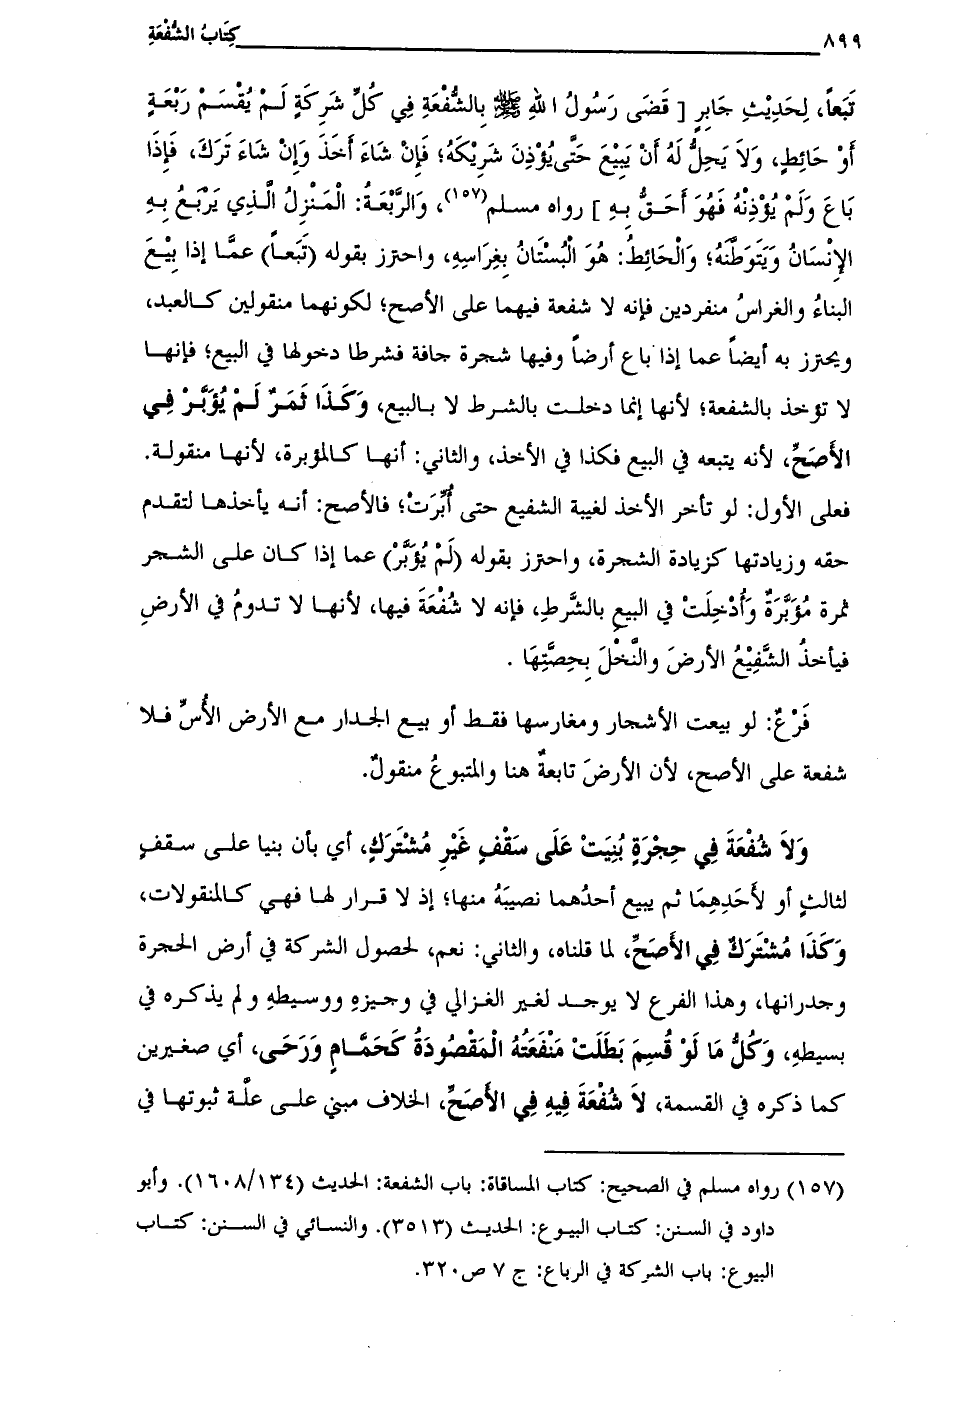 ٨٩٩ كِتَابُ الشُّفْعَةِ
تَبَعاً، لِحَدِيْثِ جَابِرٍ [ قَضَى رَسُولُ اللهِ ﷺ بِالشُّفْعَةِ فِي كُلِّ شَرِكَةٍ لَمْ يُقْسَمْ رَبْعَةٍ
أَوْ حَائِطٍ، وَلاَ يَحِلُّ لَهُ أَنْ يَبِيْعَ حَتَّى يُؤْذِنَ شَرِيْكَهُ؛ فَإِنْ شَاءَ أَخَذَ وَإِنْ شَاءَ تَرَكَ، فَإِذَا
بَاعَ وَلَمْ يُؤْذِنْهُ فَهُوَ أَحَقُّ بِهِ ] رواه مسلم(١٥٧)، وَالرَّبْعَةُ: الْمَنْزِلُ الَّذِي يَرْبَعُ بِهِ
الإِنْسَانُ وَيَتَوَطَّنَهُ؛ وَالْحَائِطُ: هُوَ الْبُسْتَانُ بِغِرَاسِهِ، واحترز بقوله (تَبَعاً) عمَّا إذا بِيْعَ
البناءُ والغراسُ منفردين فإنه لا شفعة فيهما على الأصح؛ لكونهما منقولين كالعبد،
ويحترز به أيضاً عما إذا باع أرضاً وفيها شجرة جافة فشرطا دخولها في البيع؛ فإنها
لا تؤخذ بالشفعة؛ لأنها إنما دخلت بالشرط لا بالبيع، وَكَذَا ثَمَرٌ لَمْ يُؤَبَّرْ فِي
الأَصَحِّ، لأنه يتبعه في البيع فكذا في الأخذ، والثاني: أنها كالمؤبرة، لأنها منقولة.
فعلى الأول: لو تأخر الأخذ لغيبة الشفيع حتى أُبِّرَتْ؛ فالأصح: أنه يأخذها لتقدم
حقه وزيادتها كزيادة الشجرة، واحترز بقوله (لَمْ يُؤَبَّرْ) عما إذا كان على الشجر
ثمرة مُؤَبَّرَةٌ وَأُدْخِلَتْ في البيعِ بالشَّرطِ، فإنه لا شُفْعَةَ فيها، لأنها لا تدومُ في الأرضِ
فيأخذُ الشَّفِيْعُ الأرضَ والنَّخْلَ بِحِصَّتِهَا .
فَرْعٌ: لو بيعت الأشجار ومغارسها فقط أو بيع الجدار مع الأرض الأُسِّ فلا
شفعة على الأصح، لأن الأرضَ تابعةٌ هنا والمتبوعُ منقولٌ.
وَلاَ شُفْعَةَ فِي حِجْرَةٍ بُنِيَتْ عَلَى سَقْفٍ غَيْرِ مُشْتَرَكٍ، أي بأن بنيا على سقفٍ
لثالثٍ أو لأَحَدِهِمَا ثم يبيع أحدُهما نصيبَهُ منها؛ إذ لا قرار لها فهي كالمنقولات،
وَكَذَا مُشْتَرَكٌ فِي الأَصَحِّ، لما قلناه، والثاني: نعم، لحصول الشركة في أرض الحجرة
وجدرانها، وهذا الفرع لا يوجد لغير الغزالي في وجيزهِ ووسيطهِ ولم يذكره في
بسيطهِ، وَكُلُّ مَا لَوْ قُسِمَ بَطَلَتْ مَنْفَعَتُهُ الْمَقْصُودَةُ كَحَمَّامٍ وَرَحَى، أي صغيرين
كما ذكره في القسمة، لاَ شُفْعَةَ فِيهِ فِي الأَصَحِّ، الخلاف مبني على علَّة ثبوتها في
(١٥٧) رواه مسلم في الصحيح: كتاب المساقاة: باب الشفعة: الحديث (١٦٠٨/١٣٤). وأبو
داود في السنن: كتاب البيوع: الحديث (٣٥١٣). والنسائي في السنن: كتاب
البيوع: باب الشركة في الرباع: ج ٧ ص٣٢٠.